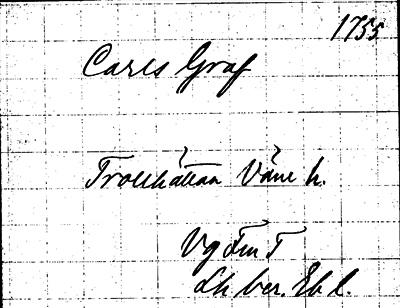 1755
Carls Graf
Trollhättan Väne h.
Vg Fm T
Lh ber. Ebl.